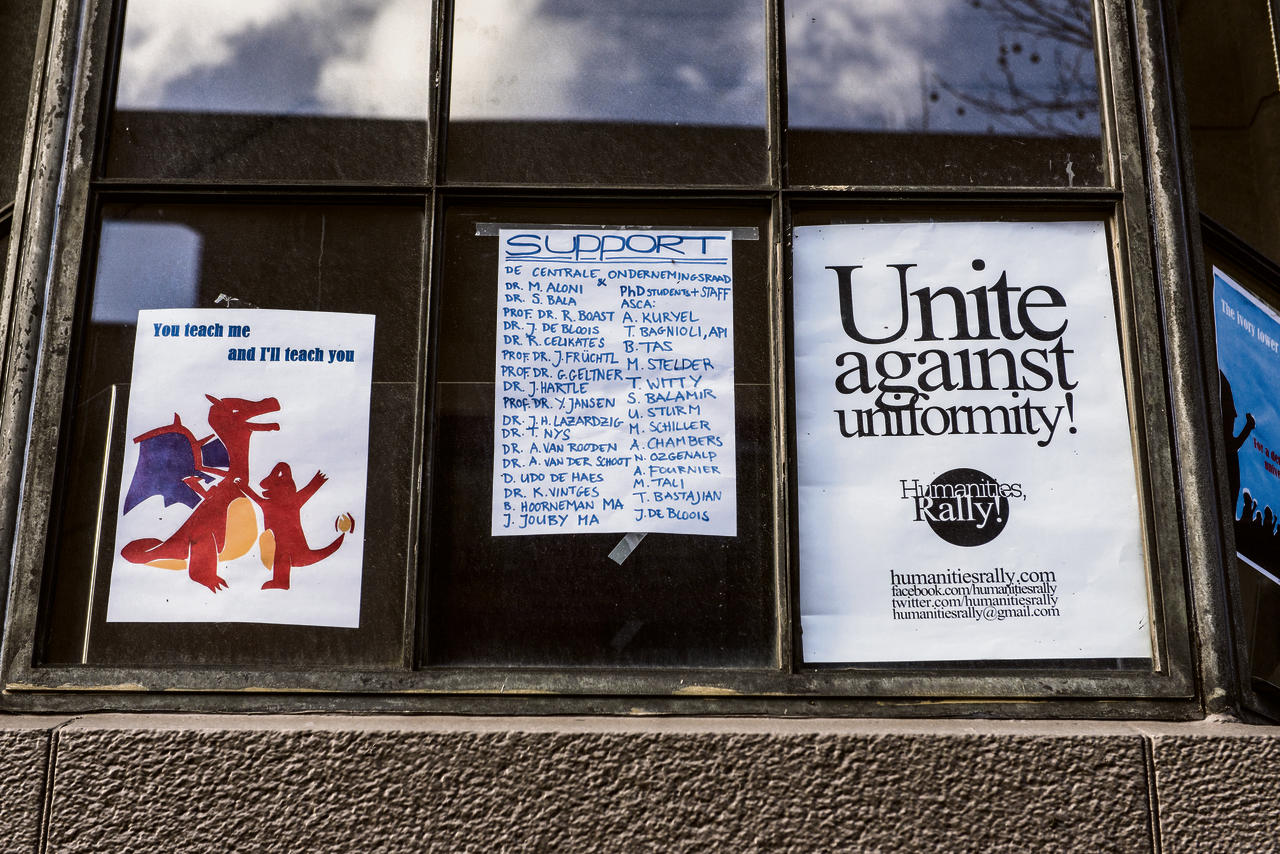 You teach me
and I'll teach you
SUPPORT
DE CENTRALE ONDERNEMINGSRAAD
&
DR. M. ALONI
DR. S. BALA
PROF. DR. R. BOAST
DR. J. DE BLOIS
DR. R. CELIKATES
PROF. DR. J. FRÜCHTL
PROF. DR. G. GELTNER
DR. J. HARTLE
PROF. DR. Y. JANSEN
DR. J.H. LAZARDZIG
DR. T. NYS
DR. A. VAN ROODEN
DR. A. VAN DER SCHOOT
D. UDO DE HAES
DR. K. VINTGES
B. HOORNEMAN MA
J. JOUBY MA
PhD STUDENTS + STAFF
ASCA:
A. KURYEL
T. BAGNIOLI, API
B. TAS
M. STELDER
T. WITTY
S. BALAMIR
U. STURM
M. SCHILLER
A. CHAMBERS
N. OZGENALP
A. FOURNIER
M. TALI
T. BASTAJIAN
J. DE BLOOIS
Unite
against
uniformity!
Humanities,
Rally!
humanitiesrally.com
facebook.com/humanitiesrally
twitter.com/humanitiesrally
humanitiesrally@gmail.com
The ivory tower
For a de